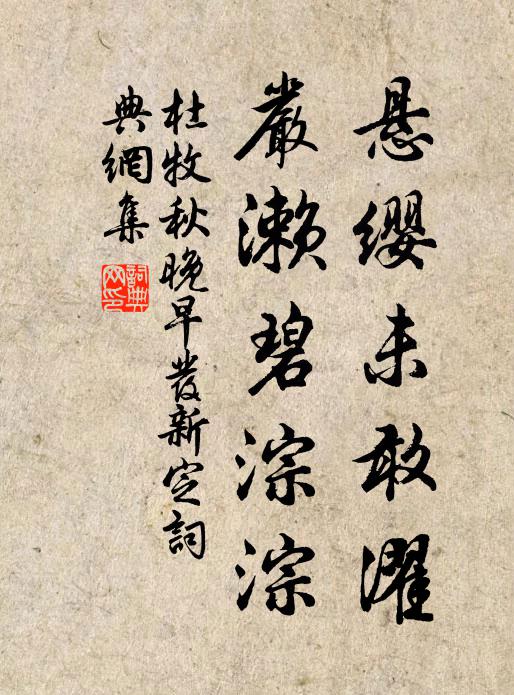 悬缨未敢濯
嚴濑碧淙淙
杜牧秋晚早發新定詞
典網集
詞典
网印